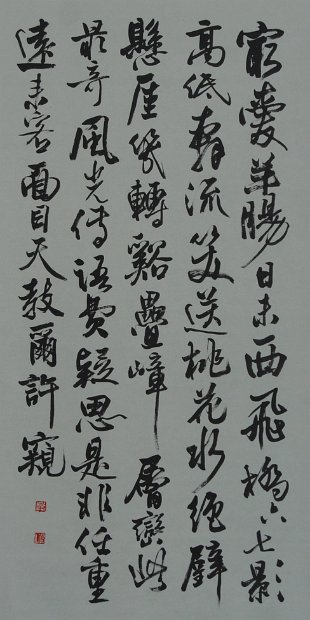 窮羊腸日未西飛橋六七影
高低奔流笑送桃花水絕壁
懸厓幾轉谿疊嶂層巒此
最奇風光傳語費疑思是非任重
遠來客面目天教爾許窺